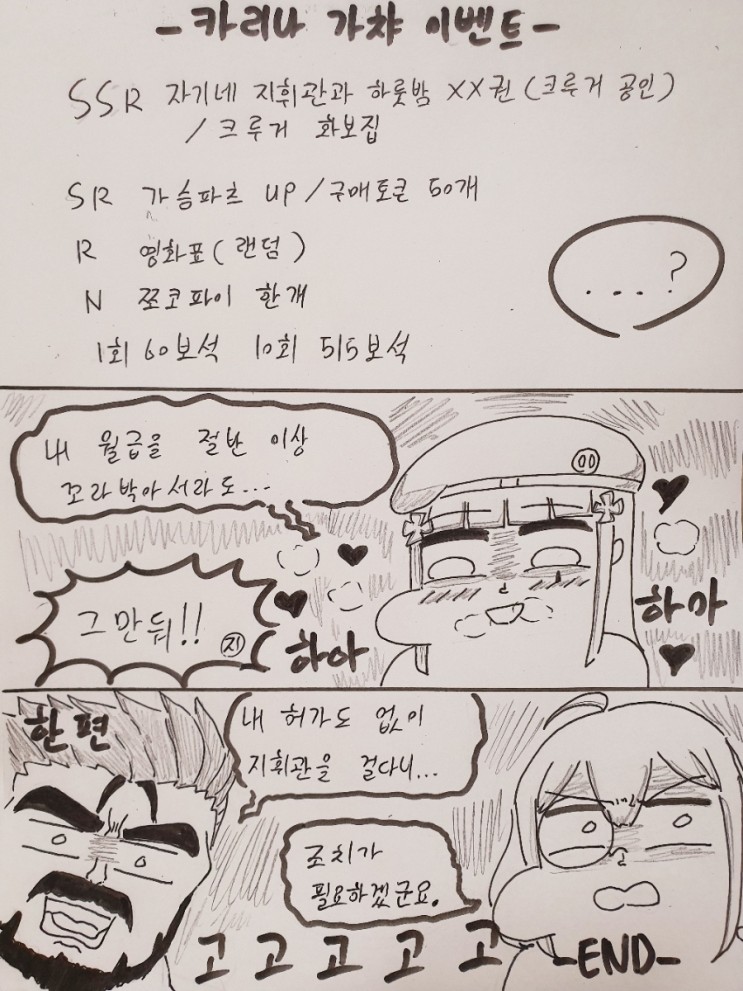 -카리나 가챠 이벤트-
SSR 자기네 지휘관과 하룻밤 XX권(크루거 공인)
/ 크루거 화보집
SR 가슴파츠 UP/구매토큰 50개
R 영화표(랜덤)
N 쪼코파이 한개
1회 60보석 10회 515보석
...?
내 월급을 절반 이상
꼬라박아서라도...
그만둬!!
지
하아
하아
한편
내 허가도 없이
지휘관을 걸다니...
조치가
필요하겠군요.
고고고고고
-END-